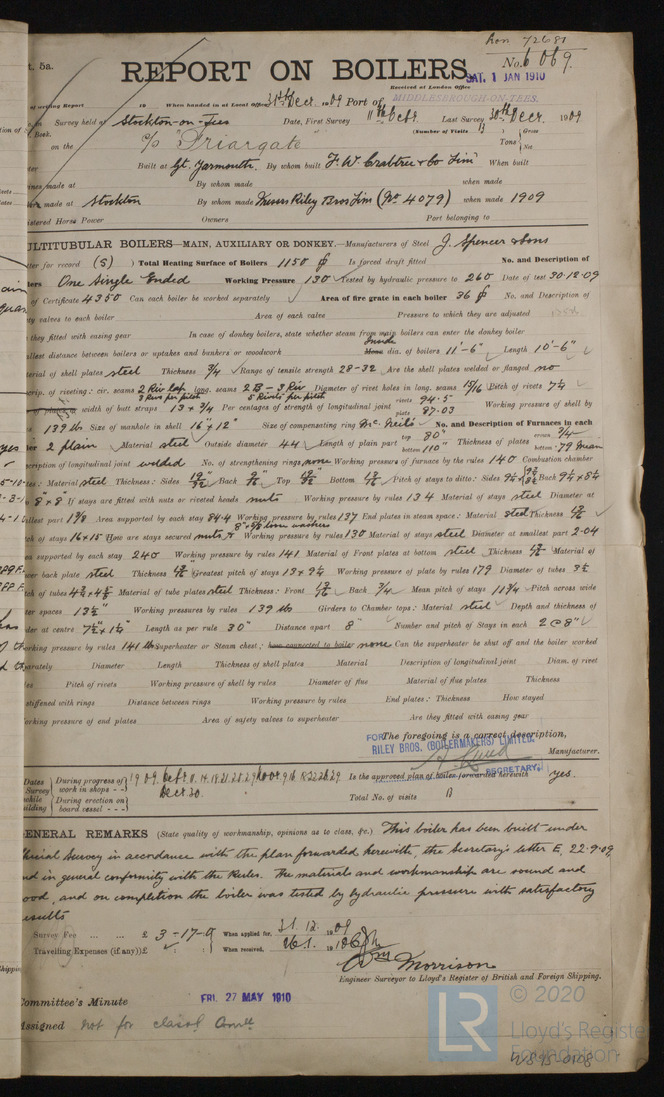 hon 72681
t. 5a.
REPORT ON BOILERS.
No. 6069.
Received at London Office
SAT. 1 JAN 1910
of writing Report 19 When handed in at Local Office 31st Decr. 1909 Port of MIDDLESBROUGH-ON-TEES.
Survey held at Stockton-on-Tees Date, First Survey 11th Octr. Last Survey 30th Decr. 1909
Book. (Number of Visits 13)
on the S/S "Friargate" Tons { Gross Net
Built at Gt. Yarmouth By whom built F. W. Crabtree & Co Lim When built
ines made at By whom made when made
made at Stockton By whom made Messrs Riley Bros Lim (No 4079) when made 1909
istered Horse Power Owners Port belonging to
ULTITUBULAR BOILERS—MAIN, AUXILIARY OR DONKEY.—Manufacturers of Steel J. Spencer & Sons
tter for record (S) Total Heating Surface of Boilers 1150 Is forced draft fitted No. and Description of
One Single Ended Working Pressure 130 Tested by hydraulic pressure to 260 Date of test 30.12.09
of Certificate 4350 Can each boiler be worked separately Area of fire grate in each boiler 36 No. and Description of
ty valves to each boiler Area of each valve Pressure to which they are adjusted
they fitted with easing gear In case of donkey boilers, state whether steam from main boilers can enter the donkey boiler
allest distance between boilers or uptakes and bunkers or woodwork Inside Mean dia. of boilers 11'-6" Length 10'-6"
terial of shell plates steel Thickness 3/4 Range of tensile strength 28-32 Are the shell plates welded or flanged no
crip. of riveting: cir. seams 2 Riv lap long. seams 2 B - 3 Riv Diameter of rivet holes in long. seams 15/16 Pitch of rivets 7 1/4
2 Rivs per pitch 5 Rivets per pitch
width of butt straps 13 + 3/4 Per centages of strength of longitudinal joint rivets 94.5 plate 87.03 Working pressure of shell by
139 lb Size of manhole in shell 16" + 12" Size of compensating ring McNeils No. and Description of Furnaces in each
2 plain Material steel Outside diameter 44 Length of plain part top 80" bottom 110" Thickness of plates crown 3/4 bottom .79 mean
cription of longitudinal joint welded No. of strengthening rings none Working pressure of furnace by the rules 140 Combustion chamber
Material steel Thickness: Sides Back Top Bottom Pitch of stays to ditto: Sides Back
8" + 8" If stays are fitted with nuts or riveted heads nuts Working pressure by rules 134 Material of stays steel Diameter at
allest part 1 3/8 Area supported by each stay 84.4 Working pressure by rules 137 End plates in steam space: Material steel Thickness
ch of stays 16 + 15 How are stays secured nuts & washers Working pressure by rules 130 Material of stays steel Diameter at smallest part 2.04
ea supported by each stay 240 Working pressure by rules 141 Material of Front plates at bottom steel Thickness Material of
wer back plate steel Thickness Greatest pitch of stays 13 + 9 1/4 Working pressure of plate by rules 179 Diameter of tubes 3 1/2
tch of tubes Material of tube plates steel Thickness: Front Back 3/4 Mean pitch of stays 11 3/4 Pitch across wide
ter spaces 13 1/2" Working pressures by rules 139 lb Girders to Chamber tops: Material steel Depth and thickness of
der at centre 7 1/2 + 1 1/4 Length as per rule 30" Distance apart 8" Number and pitch of Stays in each 2 @ 8"
orking pressure by rules 141 lb Superheater or Steam chest; how connected to boiler none Can the superheater be shut off and the boiler worked
parately Diameter Length Thickness of shell plates Material Description of longitudinal joint Diam. of rivet
les Pitch of rivets Working pressure of shell by rules Diameter of flue Material of flue plates Thickness
stiffened with rings Distance between rings Working pressure by rules End plates: Thickness How stayed
orking pressure of end plates Area of safety valves to superheater Are they fitted with easing gear
The foregoing is a correct description,
FOR RILEY BROS. (BOILERMAKERS) LIMITED. Manufacturer.
SECRETARY.
Dates of Survey while building { During progress of work in shops - - During erection on board vessel - - -
1909 Octr 11. 14. 19. 21. 25. 29 Nov. 9. 16. 18. 22. 26. 29 Decr. 30. Is the approved plan of boiler forwarded herewith yes.
Total No. of visits 13
GENERAL REMARKS (State quality of workmanship, opinions as to class, &c.) This boiler has been built under
Special Survey in accordance with the plan forwarded herewith, the Secretary's letter E. 22.9.09,
and in general conformity with the Rules. The materials and workmanship are sound and
good, and on completion the boiler was tested by hydraulic pressure with satisfactory
results
Survey Fee ... ... £ 3-17-0 When applied for, 31.12.1909
Travelling Expenses (if any) £ When received, 26.1.1910
Morrison
Engineer Surveyor to Lloyd's Register of British and Foreign Shipping.
Committee's Minute FRI. 27 MAY 1910
Assigned Not for class
LR © 2020
Lloyd's Register
Foundation
W895-0108